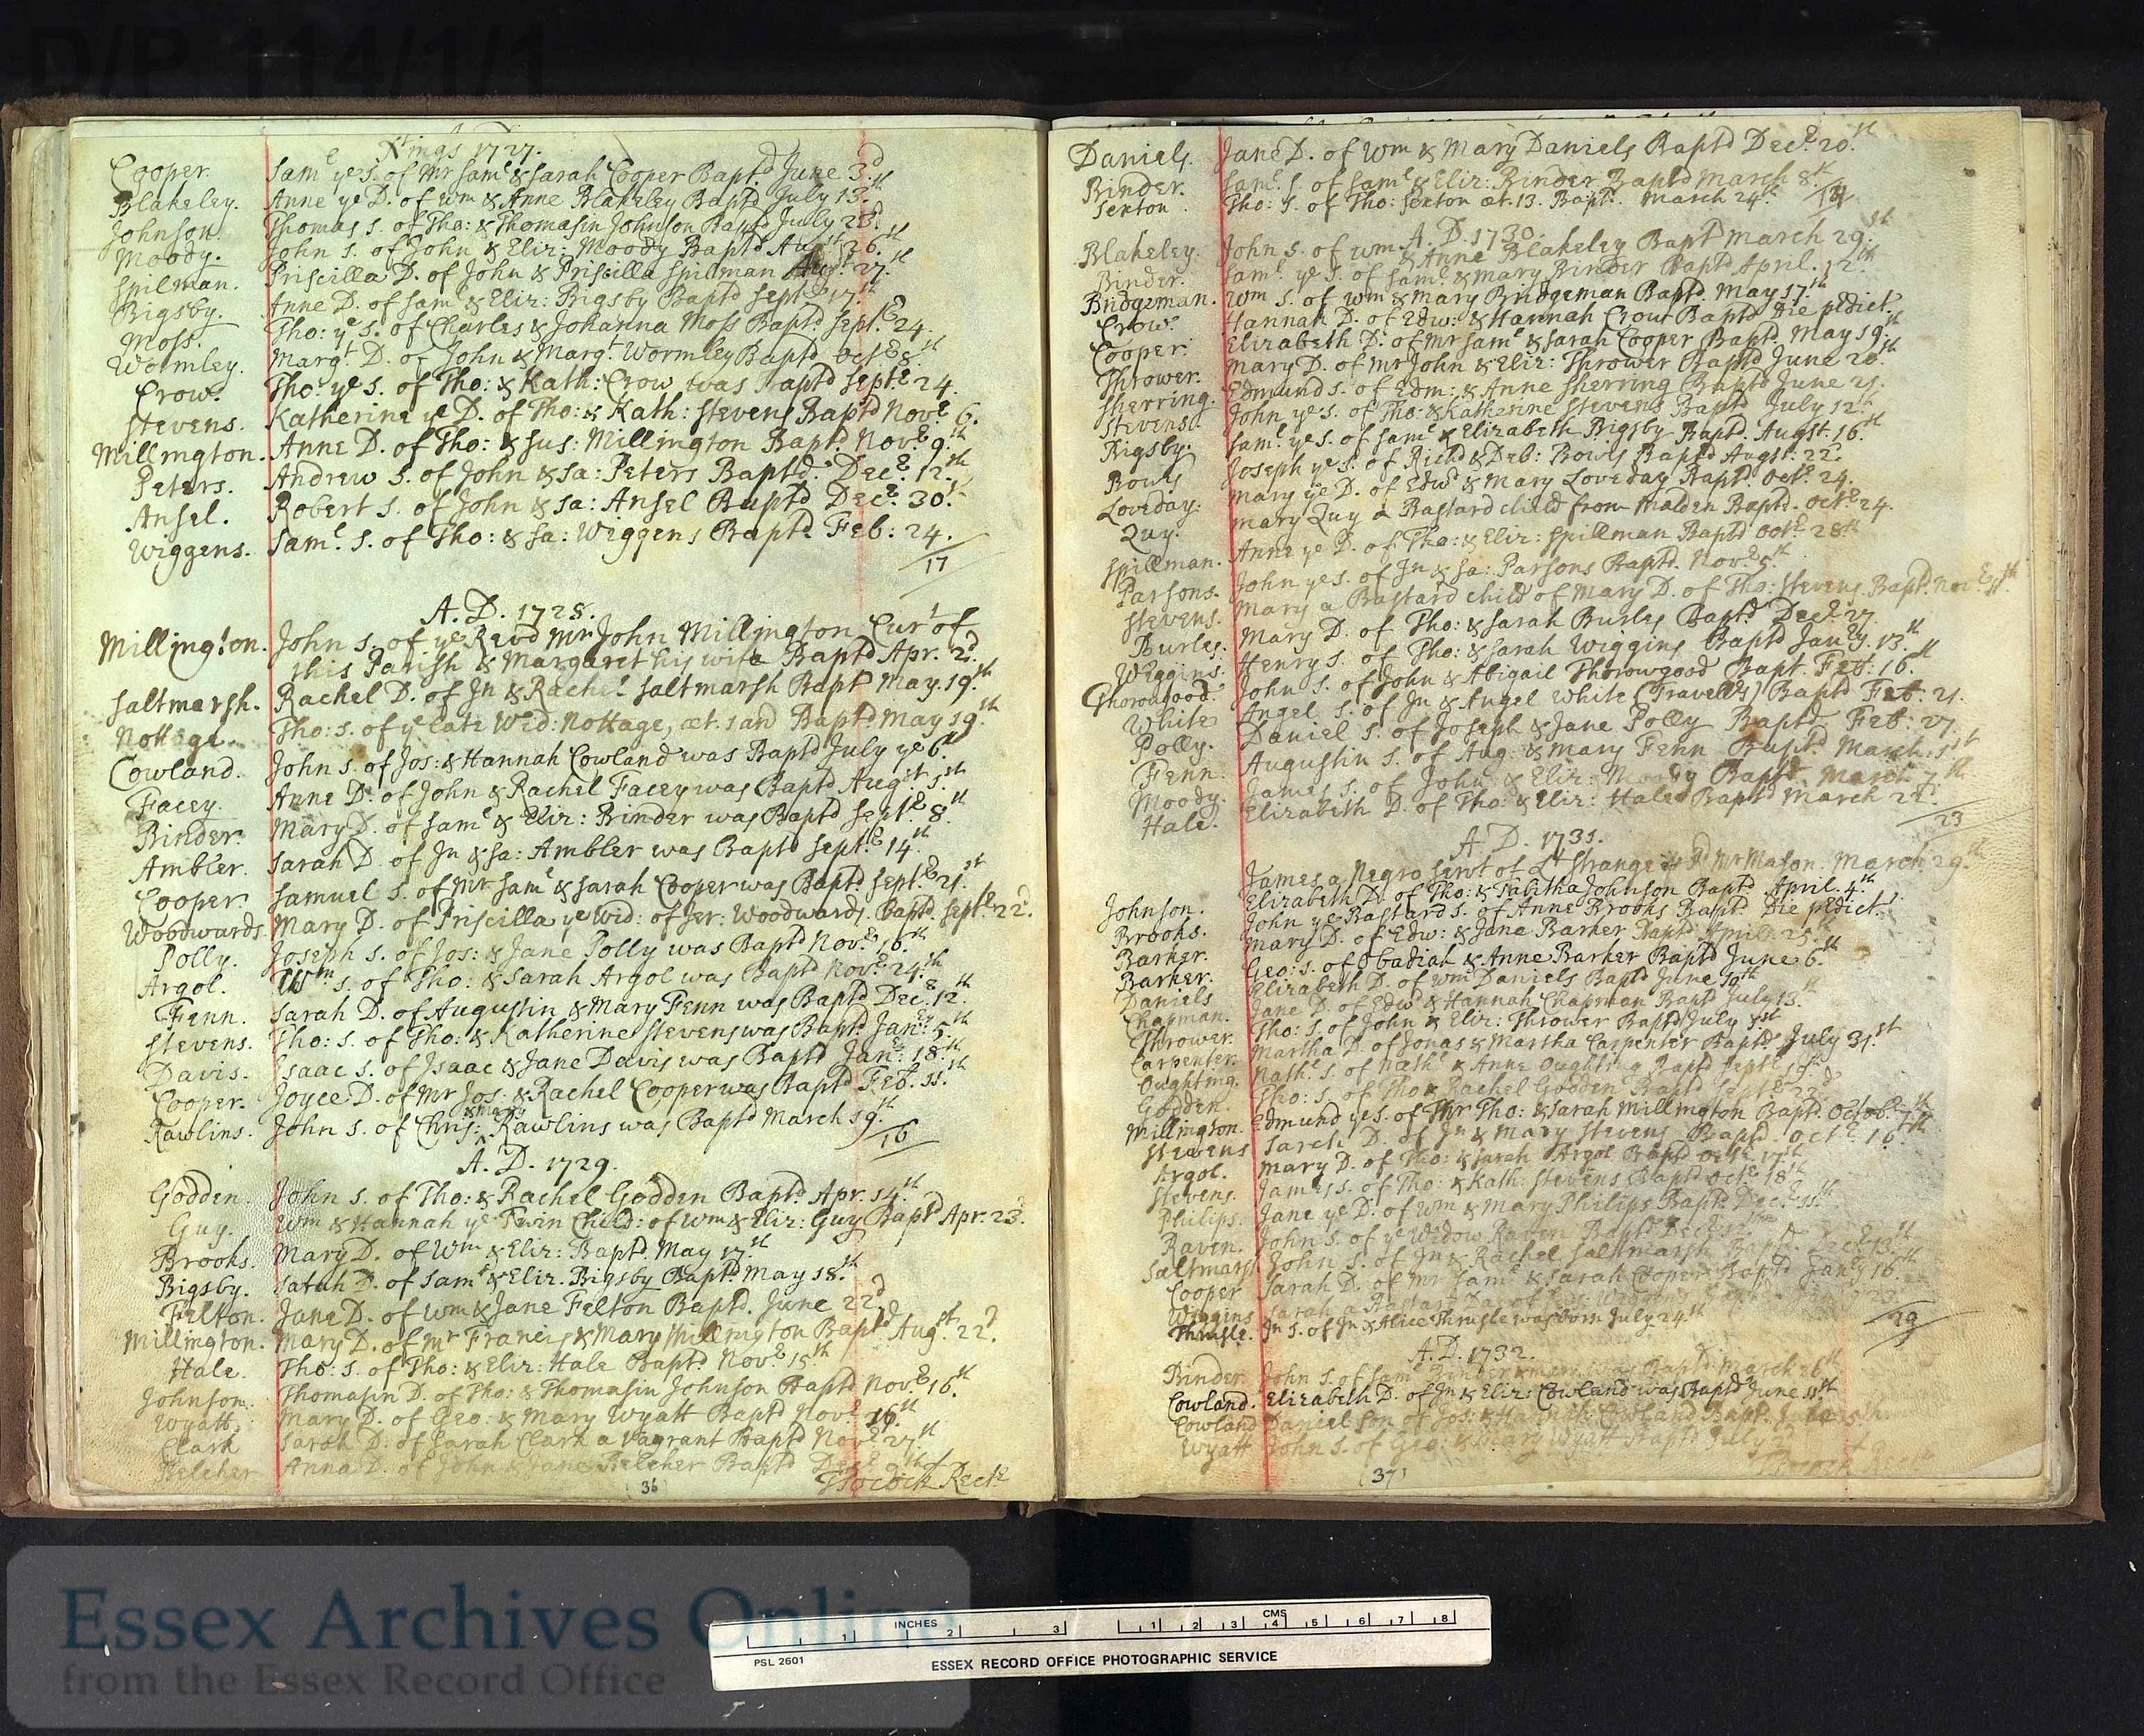 D/P 114/1/1
Xtnings 1727.
Cooper. Sam.l ye S. of Mr Sam.l & Sarah Cooper Bapt.d June 3.d
Blakeley. Anne ye D. of Wm & Anne Blakeley Bapt.d July 13.th
Johnson. Thomas S. of Tho: & Thomasin Johnson Bapt.d July 23.d
Moody. John S. of John & Eliz: Moody Bapt.d Augst 26.th
Spilman. Priscilla D. of John & Priscilla Spilman Augst. 27.th
Bigsby. Anne D. of Sam.l & Eliz: Bigsby Bapt.d Sept.r 17.th
Moss. Tho: ye S. of Charles & Johanna Moss Bapt.d Sept.r 24.
Wormley. Marg.t D. of John & Marg.t Wormley Bapt.d Oct.r 8.th
Crow. Tho: ye S. of Tho: & Kath: Crow was Bapt.d Sept.r 24.
Stevens. Katherine ye D. of Tho: & Kath: Stevens Bapt.d Nov.r 6.
Millington. Anne D. of Tho: & Sus: Millington Bapt.d Nov.r 9.th
Peters. Andrew S. of John & Sa: Peters Bapt.d Dec.r 12.th
Ansel. Robert S. of John & Sa: Ansel Bapt.d Dec.r 30.th
Wiggens. Sam.l S. of Tho: & Sa: Wiggens Bapt.d Feb: 24.
17
A.D. 1728.
Millington. John S. of ye Rev.d Mr John Millington Cur.t of
this Parish & Margaret his wife Bapt.d Apr. 2.d
Saltmarsh. Rachel D. of Jn & Rachel Saltmarsh Bapt.d May. 19.th
Nottage. Tho: S. of ye late Wid: Nottage, æt. Bapt.d May 19.th
Cowland. John S. of Jos: & Hannah Cowland was Bapt.d July ye 6.th
Facey. Anne D. of John & Rachel Facey was Bapt.d Aug.st 1.st
Binder. Mary D. of Sam.l & Eliz: Binder was Bapt.d Sept.r 8.th
Ambler. Sarah D. of Jn & Sa: Ambler was Bapt.d Sept.r 14.th
Cooper. Samuel S. of Mr Sam.l & Sarah Cooper was Bapt.d Sept.r 21.st
Woodwards. Mary D. of Priscilla ye Wid: of Jer: Woodwards. Bapt.d Sept.r 22.d
Polly. Joseph S. of Jos: & Jane Polly was Bapt.d Nov.r 16.th
Argol. Wm S. of Tho: & Sarah Argol was Bapt.d Nov.r 24.th
Fenn. Sarah D. of Augustin & Mary Fenn was Bapt.d Dec.r 12.th
Stevens. Tho: S. of Tho: & Katherine Stevens was Bapt.d Jan.ry 5.th
Davis. Isaac S. of Isaac & Jane Davis was Bapt.d Jan.ry 18.th
Cooper. Joyce D. of Mr Jos: & Rachel Cooper was Bapt.d Feb. 11.th
Rawlins. John S. of Chris: & Mary Rawlins was Bapt.d March 19.th
16
A.D. 1729.
Godden. John S. of Tho: & Rachel Godden Bapt.d Apr. 14.th
Guy. Wm & Hannah ye Twin Child: of Wm & Eliz: Guy Bapt.d Apr. 23.d
Brooks. Mary D. of Wm & Eliz: Bapt.d May 17.th
Bigsby. Sarah D. of Sam.l & Eliz. Bigsby Bapt.d May 18.th
Felton. Jane D. of Wm & Jane Felton Bapt.d June 22.d
Millington. Mary D. of Mr Francis & Mary Millington Bapt.d Aug.st 22.d
Hale. Tho: S. of Tho: & Eliz: Hale Bapt.d Nov.r 15.th
Johnson. Thomasin D. of Tho: & Thomasin Johnson Bapt.d Nov.r 16.th
Wyatt. Mary D. of Geo: & Mary Wyatt Bapt.d Nov.r 16.th
Clark Sarah D. of Sarah Clark a Vagrant Bapt.d Nov.r 27.th
Belcher Anna D. of John & Jane Belcher Bapt.d Dec.r 9.th
T Pocock Rect.r
36
Daniels. Jane D. of Wm & Mary Daniels Bapt.d Dec.r 20.th
Binder. Sam.l S. of Sam.l & Eliz: Binder Bapt.d March 8.th
Sexton. Tho: S. of Tho: Sexton æt. 13. Bapt.d March 24.th
A.D. 1730.
Blakeley. John S. of Wm & Anne Blakeley Bapt.d March 29.th
Binder. Sam.l ye S. of Sam.l & Mary Binder Bapt.d April. 12.th
Bridgeman. Wm S. of Wm & Mary Bridgeman Bapt.d May 17.th
Crow. Hannah D. of Edw: & Hannah Crow Bapt.d Die p̄dict.
Cooper. Elizabeth D. of Mr Sam.l & Sarah Cooper Bapt.d May 19.th
Thrower. Mary D. of Mr John & Eliz: Thrower Bapt.d June 20.th
Sherring. Edmund S. of Edm: & Anne Sherring Bapt.d June 21.
Stevens. John ye S. of Tho: & Katherine Stevens Bapt.d July 12.th
Bigsby. Sam.l ye S. of Sam.l & Elizabeth Bigsby Bapt.d Augst. 16.th
Bowls Joseph ye S. of Rich.d & Deb: Bowls Bapt.d Augst: 22.
Loveday. Mary ye D. of Edw.d & Mary Loveday Bapt.d Oct.r 24.
Quy. Mary Quy a Bastard child from Malden Bapt.d Oct.r 24.
Spillman. Anne ye D. of Tho: & Eliz: Spillman Bapt.d Oct.r 28.th
Parsons. John ye S. of Jn & Sa: Parsons Bapt.d Nov.r 5.th
Stevens. Mary a Bastard child of Mary D. of Tho: Stevens. Bapt.d Nov.r 11.th
Burles. Mary D. of Tho: & Sarah Burles Bapt.d Dec.r 27
Wiggins. Henry S. of Tho: & Sarah Wiggins Bapt.d Jan.ry 13.th
Thorowgood. John S. of John & Abigail Thorowgood Bapt. Feb: 16.th
White Angel S. of Jn & Angel White (Travell.rs) Bapt.d Feb. 21.
Polly. Daniel S. of Joseph & Jane Polly Bapt.d Feb: 27.
Fenn. Augustin S. of Aug: & Mary Fenn Bapt.d March. 1.st
Moody. James S. of John & Eliz: Moody Bapt.d March 7.th
Hale. Elizabeth D. of Tho: & Eliz: Hale Bapt.d March
23
A.D. 1731.
James a Negro Serv.t of Mr Mason. March 29.th
Johnson. Elizabeth D. of Tho: & Tabitha Johnson Bapt.d April. 4.th
Brooks. John ye Bastard S. of Anne Brooks Bapt.d Die p̄dict.
Barker. Mary D. of Edw: & Jane Barker Bapt.d April. 25.th
Barker. Geo: S. of Obadiah & Anne Barker Bapt.d June 6.th
Daniels Elizabeth D. of Wm Daniels Bapt.d June 10.th
Chapman. Jane D. of Edw.d & Hannah Chapman Bapt.d July 13.th
Thrower. Tho: S. of John & Eliz: Thrower Bapt.d July
Carpenter. Martha D. of Jonas & Martha Carpenter Bapt.d July 31.st
Oughting. Nath.l S. of Nath.l & Anne Oughting Bapt.d Sept.r
Godden. Tho: S. of Tho & Rachel Godden Bapt.d Sept.r 22.d
Millington. Edmund ye S. of Mr Tho: & Sarah Millington Bapt.d Octob.r 7.th
Stevens Sarah D. of Jn & Mary Stevens Bapt.d Oct.r 16.th
Argol. Mary D. of Tho: & Sarah Argol Bapt.d Oct.r 17.th
Stevens. James S. of Tho: & Kath: Stevens Bapt.d Oct.r 18.th
Philips. Jane ye D. of Wm & Mary Philips Bapt.d Dec.r 11.th
Raven. John S. of ye Widow Raven Bapt.d Dec.r
Saltmarsh John S. of Jn & Rachel Saltmarsh Bapt.d Dec.r 13.th
Cooper Sarah D. of Mr Sam.l & Sarah Cooper Bapt.d Jan.ry 16.th
Wiggins Sarah a Bastard D. of
Thrusle. Jn S. of Jn & Alice Thrusle was born July 24.th
29
A.D. 1732.
Binder. John S. of Sam.l Binder & Mary was Bapt.d March 26.th
Cowland. Elizabeth D. of Jn & Eliz: Cowland was Bapt.d June 11.th
Cowland Daniel Son of Jos: & Hannah Cowland Bapt.d July 5.th
Wyatt John S. of Geo: & Mary Wyatt Bapt.d July
T Pocock Rect.r
(37)
Essex Archives Online
from the Essex Record Office
INCHES
CMS
1 2 3 1 2 3 4 5 6 7 8
PSL 2601
ESSEX RECORD OFFICE PHOTOGRAPHIC SERVICE